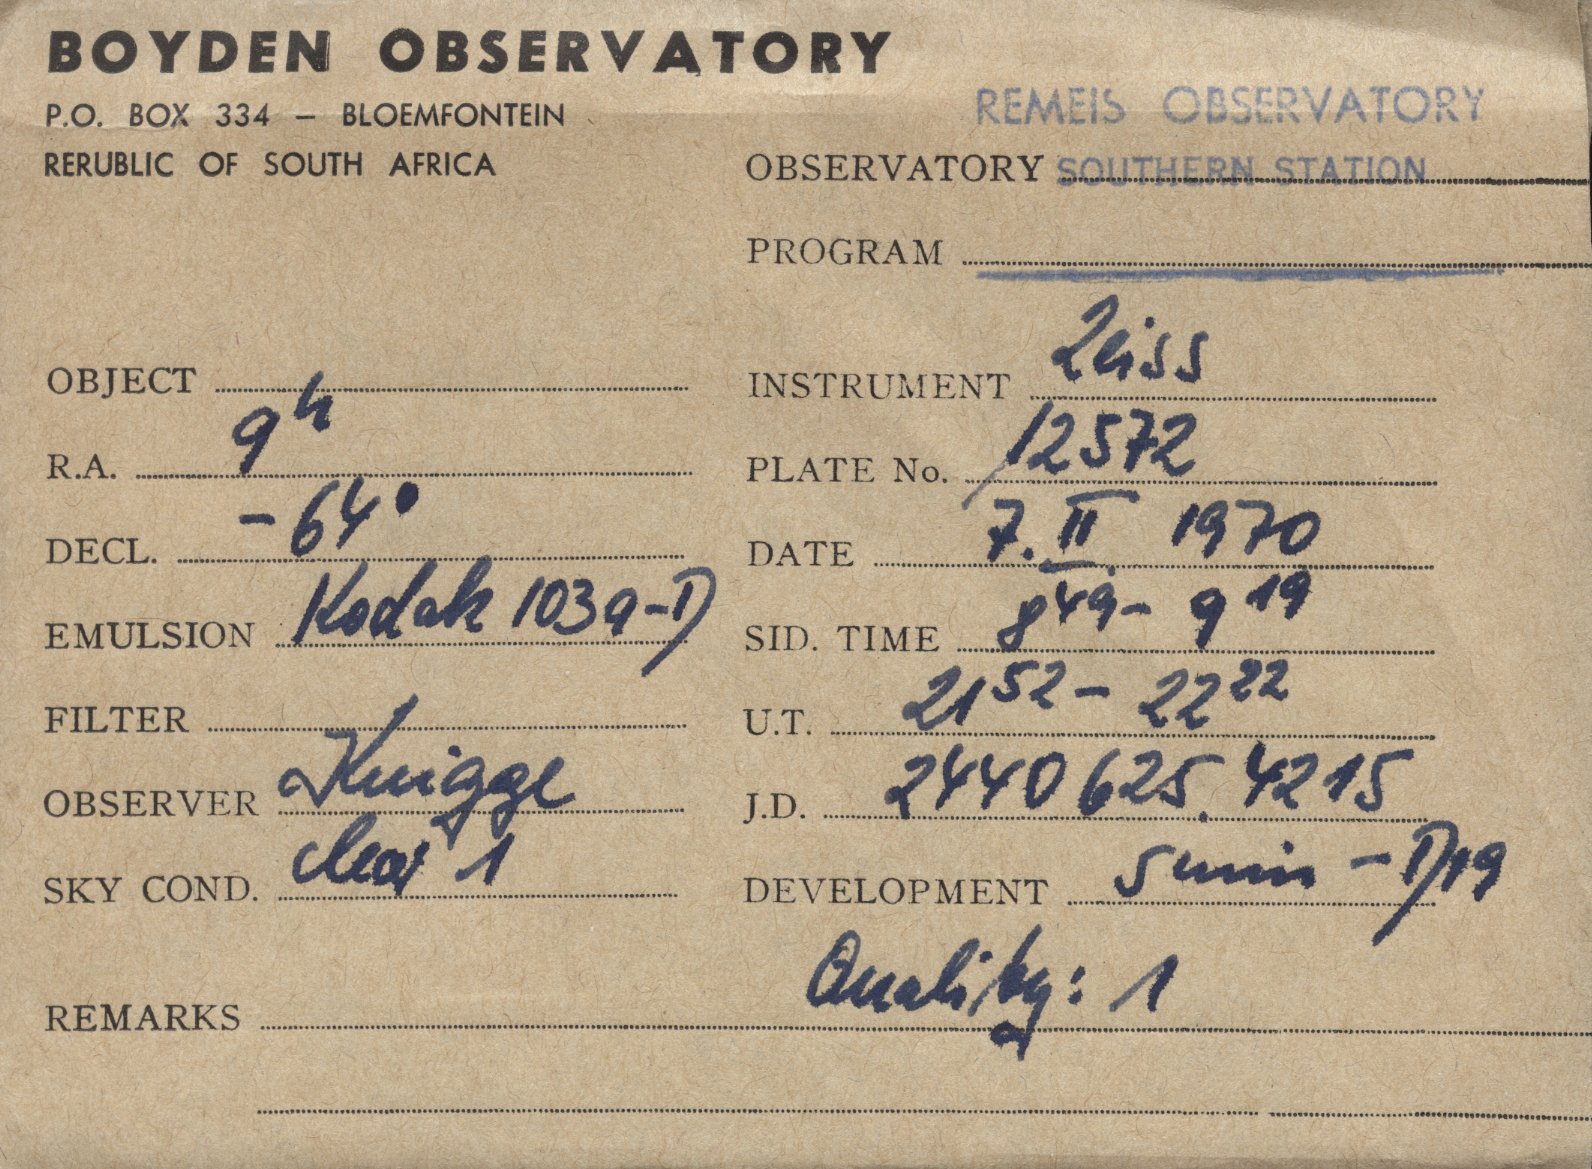 BOYDEN OBSERVATORY
P.O. BOX 334 – BLOEMFONTEIN
RERUBLIC OF SOUTH AFRICA
REMEIS OBSERVATORY
OBSERVATORY SOUTHERN STATION
PROGRAM
OBJECT
R.A. 9h
DECL. -64°
EMULSION Kodak 103a-D
FILTER
OBSERVER Knigge
SKY COND. clear 1
INSTRUMENT Zeiss
PLATE No. 12572
DATE 7. II 1970
SID. TIME 8 49 - 9 19
U.T. 21 52 - 22 22
J.D. 2440 625.4215
DEVELOPMENT 5 min - D19
REMARKS Quality: 1